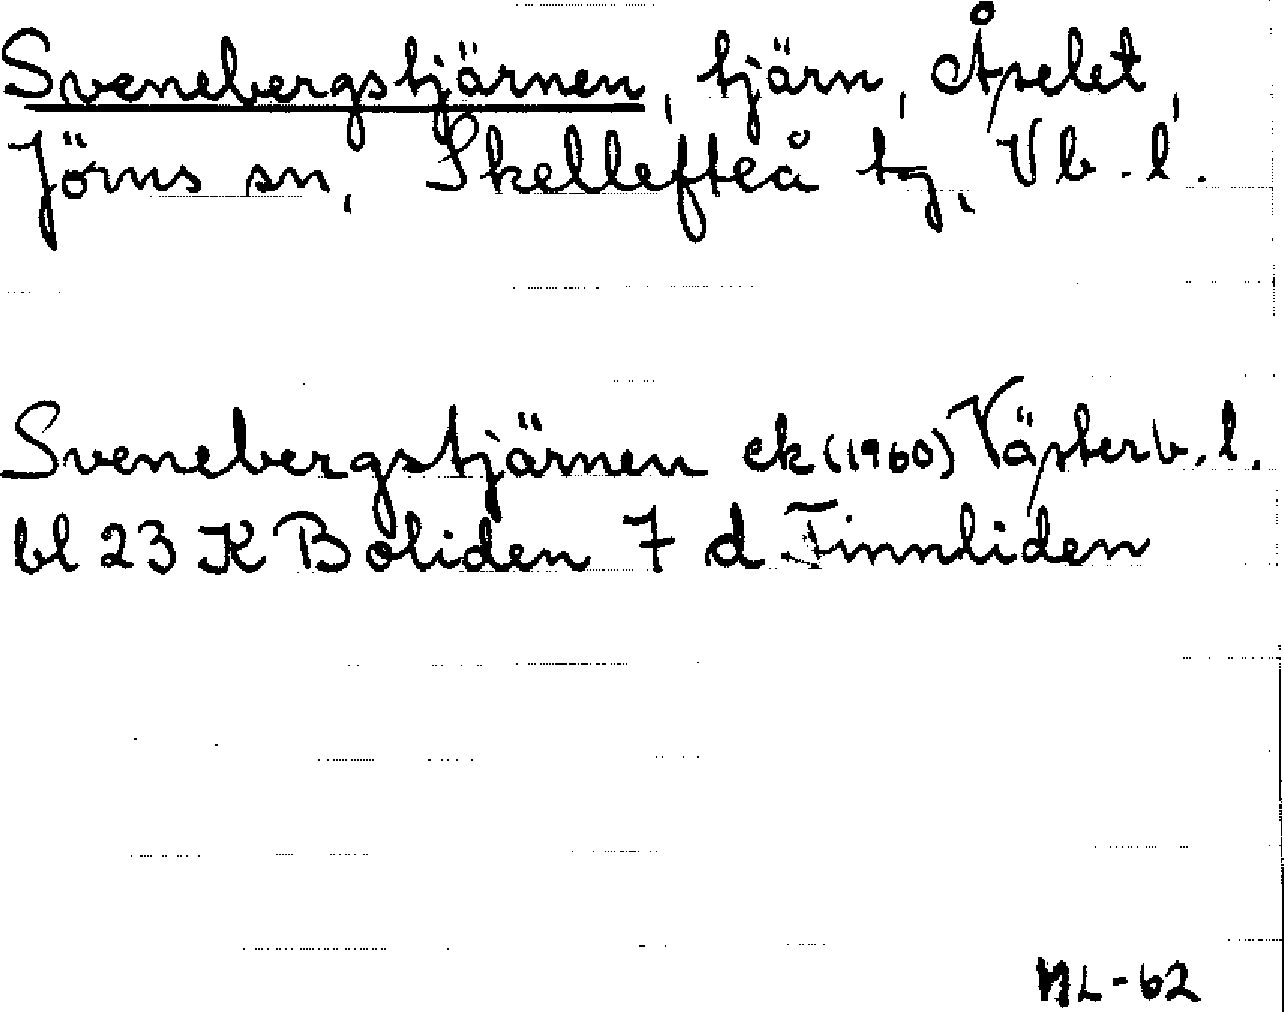 Svenebergstjärnen, tjärn, Åselet,
Jörns sn, Skellefteå tg, Vb. l.
Svenebergstjärnen ek (1960) Västerb. l.
bl 23 K Boliden 7 d Finnliden
NL-62